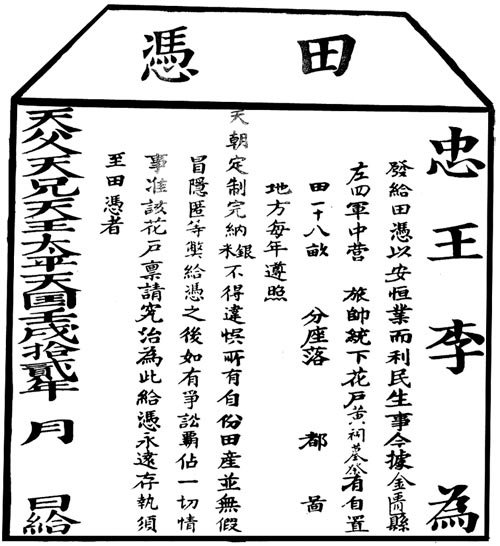 田憑
忠王李為
發給田憑以安恒業而利民生事今據金匱縣
左四軍中營 旅帥統下花戶黃祠墓祭有自置
田一十八畝 分座落 都 啚
地方每年遵照
天朝定制完納銀米不得違悞所有自份田產並無假
冒隱匿等弊給憑之後如有爭訟霸佔一切情
事准該花戶禀請究治為此給憑永遠存執須
至田憑者
天父天兄天王太平天国壬戌拾貳年 月 日給